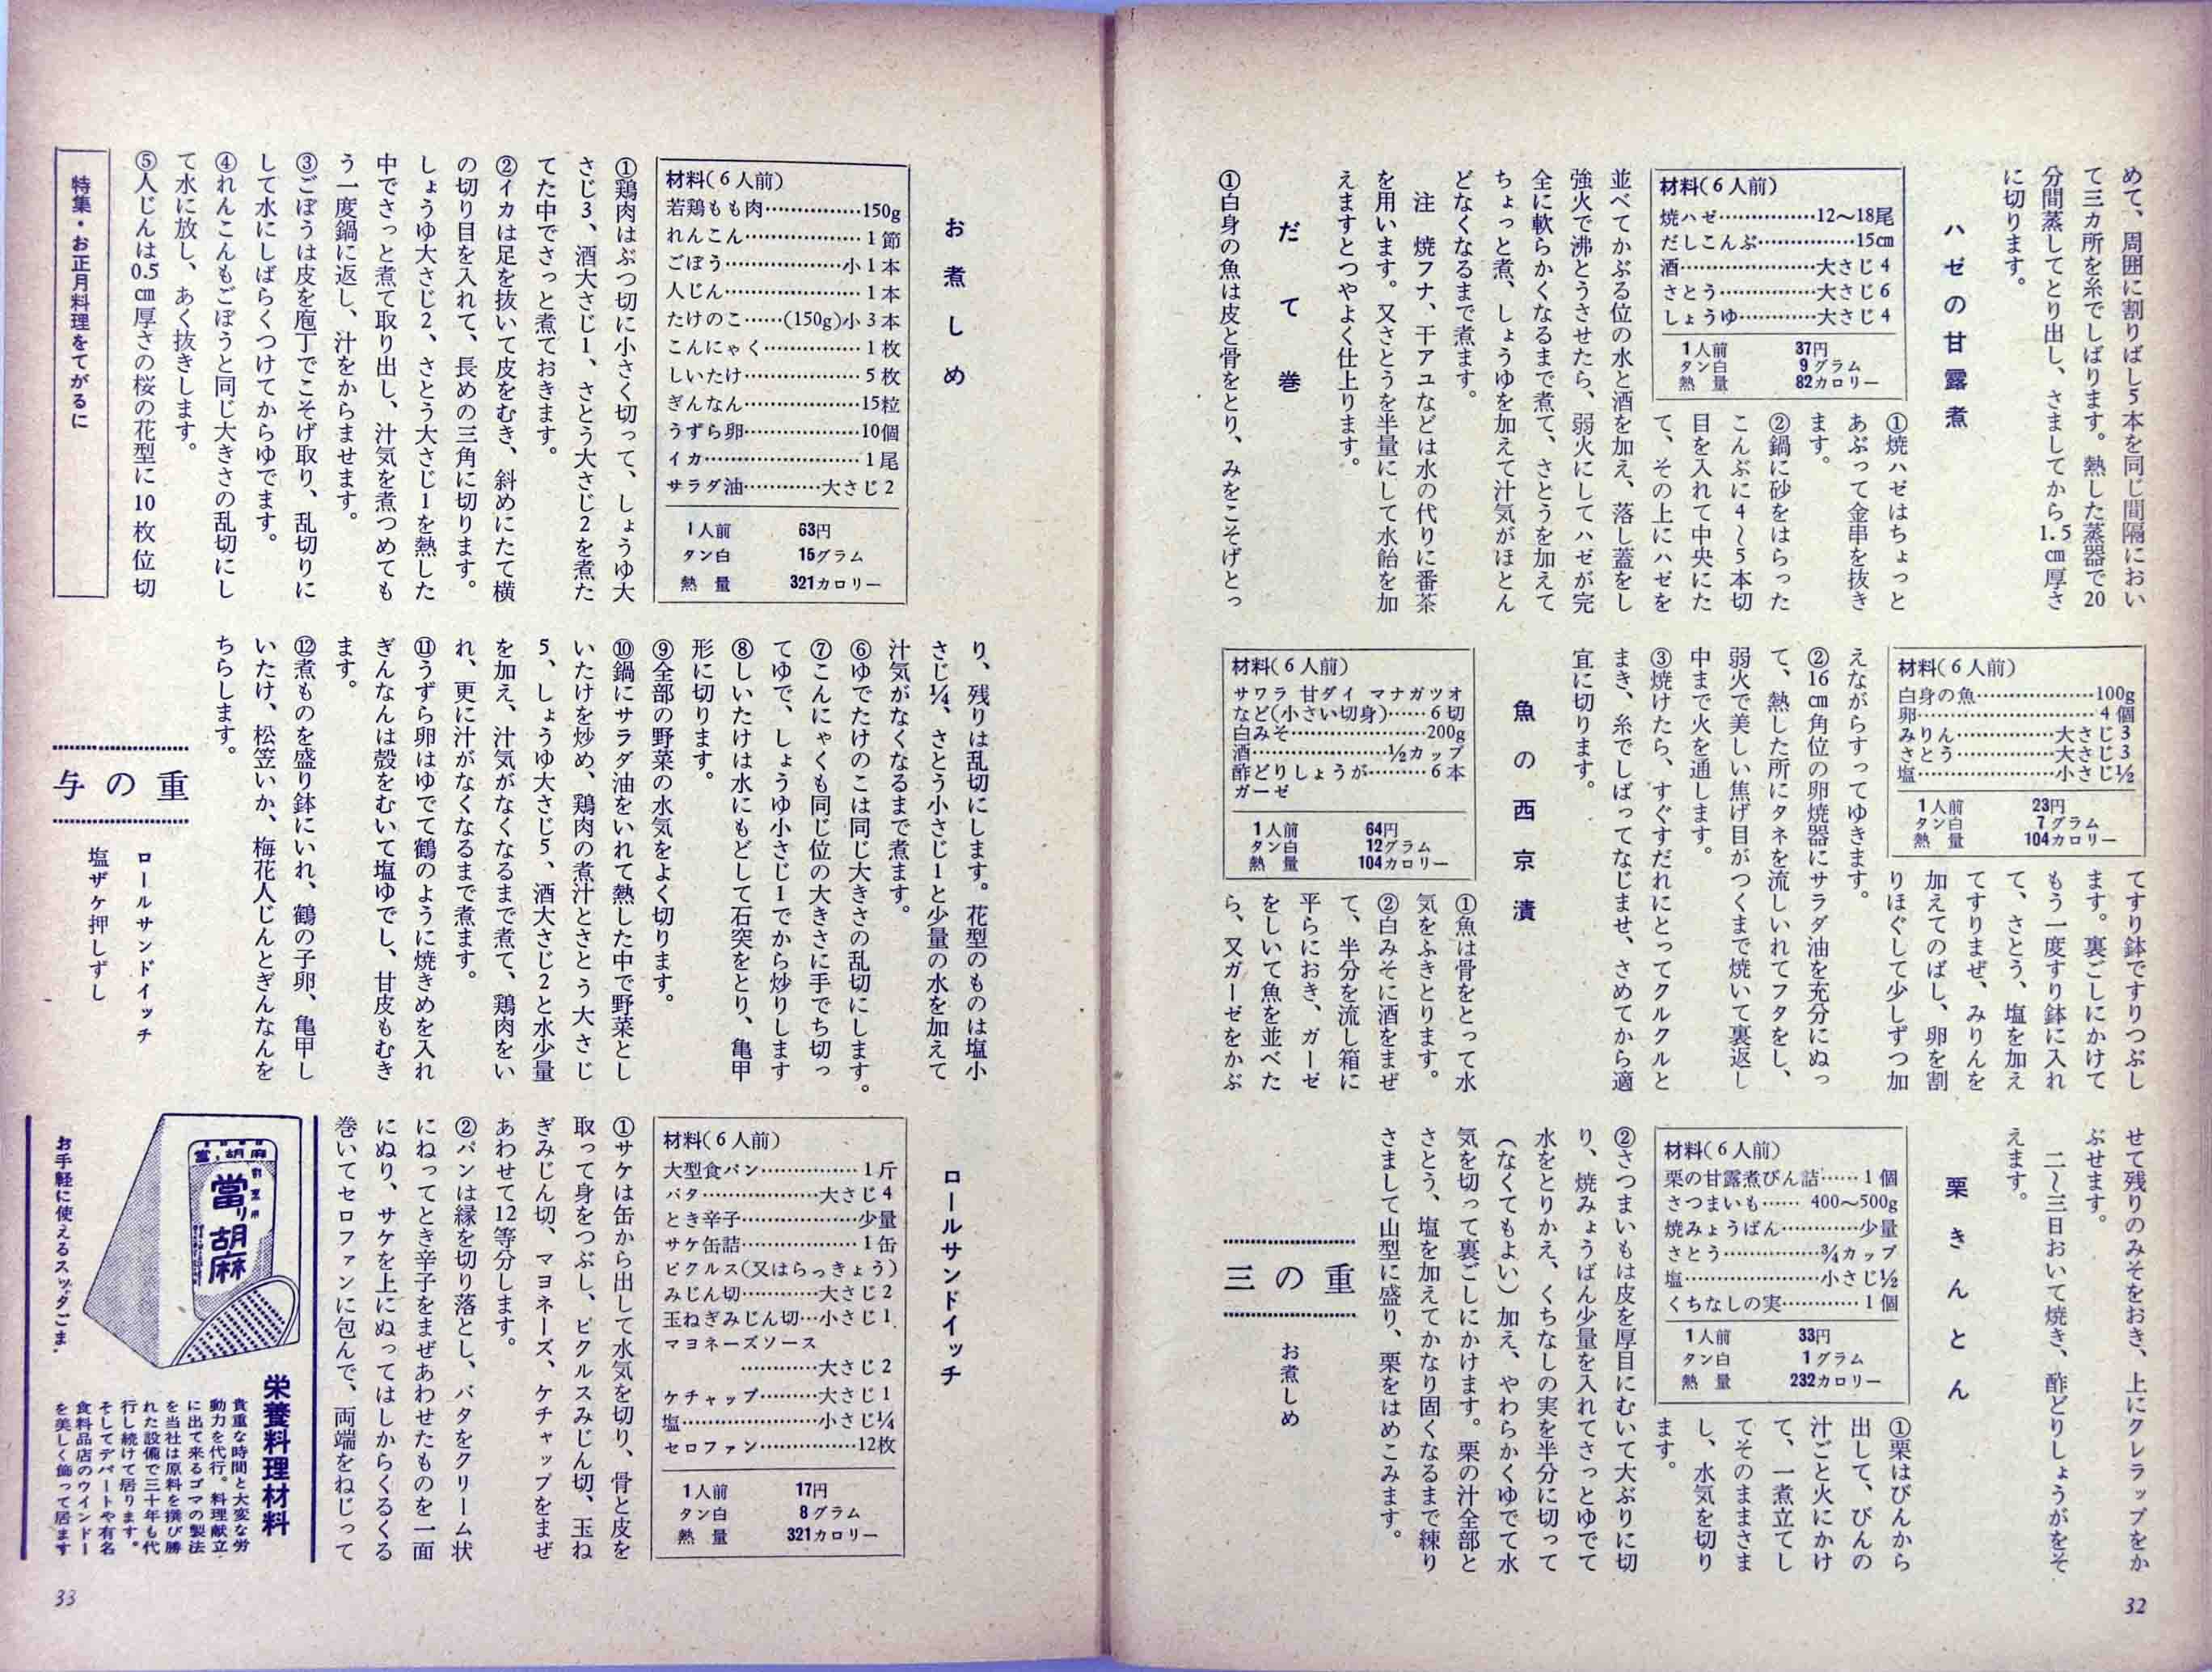 めて、周囲に割りばし5本を同じ間隔におい
て三カ所を糸でしばります。熱した蒸器で20
分間蒸してとり出し、さましてから1.5cm厚さ
に切ります。
ハゼの甘露煮
材料(6人前)
焼ハゼ……………12〜18尾
だしこんぶ……………15cm
酒…………………大さじ4
さとう……………大さじ6
しょうゆ…………大さじ4
1人前 37円
タン白 9グラム
熱量 82カロリー
①焼ハゼはちょっと
あぶって金串を抜き
ます。
②鍋に砂をはらった
こんぶに4〜5本切
目を入れて中央にた
て、その上にハゼを
並べてかぶる位の水と酒を加え、落し蓋をし
強火で沸とうさせたら、弱火にしてハゼが完
全に軟らかくなるまで煮て、さとうを加えて
ちょっと煮、しょうゆを加えて汁気がほとん
どなくなるまで煮ます。
注 焼フナ、干アユなどは水の代りに番茶
を用います。又さとうを半量にして水飴を加
えますとつやよく仕上ります。
だて巻
①白身の魚は皮と骨をとり、みをこそげとっ
材料(6人前)
白身の魚………………100g
卵…………………………4個
みりん……………大さじ3
さとう……………大さじ3
塩…………………小さじ½
1人前 23円
タン白 7グラム
熱量 104カロリー
てすり鉢ですりつぶし
ます。裏ごしにかけて
もう一度すり鉢に入れ
て、さとう、塩を加え
てすりまぜ、みりんを
加えてのばし、卵を割
りほぐして少しずつ加
えながらすってゆきます。
②16cm角位の卵焼器にサラダ油を充分にぬっ
て、熱した所にタネを流しいれてフタをし、
弱火で美しい焦げ目がつくまで焼いて裏返し
中まで火を通します。
③焼けたら、すぐすだれにとってクルクルと
まき、糸でしばってなじませ、さめてから適
宜に切ります。
魚の西京漬
材料(6人前)
サワラ 甘ダイ マナガツオ
など(小さい切身)……6切
白みそ…………………200g
酒…………………½カップ
酢どりしょうが………6本
ガーゼ
1人前 64円
タン白 12グラム
熱量 104カロリー
①魚は骨をとって水
気をふきとります。
②白みそに酒をまぜ
て、半分を流し箱に
平らにおき、ガーゼ
をしいて魚を並べた
ら、又ガーゼをかぶ
せて残りのみそをおき、上にクレラップをか
ぶせます。
二〜三日おいて焼き、酢どりしょうがをそ
えます。
栗きんとん
材料(6人前)
栗の甘露煮びん詰……1個
さつまいも……400〜500g
焼みょうばん…………少量
さとう……………¾カップ
塩…………………小さじ½
くちなしの実…………1個
1人前 33円
タン白 1グラム
熱量 232カロリー
①栗はびんから
出して、びんの
汁ごと火にかけ
て、一煮立てし
てそのままさま
し、水気を切り
ます。
②さつまいもは皮を厚目にむいて大ぶりに切
り、焼みょうばん少量を入れてさっとゆでて
水をとりかえ、くちなしの実を半分に切って
(なくてもよい)加え、やわらかくゆでて水
気を切って裏ごしにかけます。栗の汁全部と
さとう、塩を加えてかなり固くなるまで練り
さまして山型に盛り、栗をはめこみます。
三の重
お煮しめ
32
お煮しめ
材料(6人前)
若鶏もも肉……………150g
れんこん………………1節
ごぼう………………小1本
人じん…………………1本
たけのこ……(150g)小3本
こんにゃく……………1枚
しいたけ………………5枚
ぎんなん………………15粒
うずら卵………………10個
イカ……………………1尾
サラダ油…………大さじ2
1人前 63円
タン白 15グラム
熱量 321カロリー
①鶏肉はぶつ切に小さく切って、しょうゆ大
さじ3、酒大さじ1、さとう大さじ2を煮た
てた中でさっと煮ておきます。
②イカは足を抜いて皮をむき、斜めにたて横
の切り目を入れて、長めの三角に切ります。
しょうゆ大さじ2、さとう大さじ1を熱した
中でさっと煮て取り出し、汁気を煮つめても
う一度鍋に返し、汁をからませます。
③ごぼうは皮を庖丁でこそげ取り、乱切りに
して水にしばらくつけてからゆでます。
④れんこんもごぼうと同じ大きさの乱切にし
て水に放し、あく抜きします。
⑤人じんは0.5cm厚さの桜の花型に10枚位切
特集・お正月料理をてがるに
り、残りは乱切にします。花型のものは塩小
さじ¼、さとう小さじ1と少量の水を加えて
汁気がなくなるまで煮ます。
⑥ゆでたけのこは同じ大きさの乱切にします。
⑦こんにゃくも同じ位の大きさに手でち切っ
てゆで、しょうゆ小さじ1でから炒りします
⑧しいたけは水にもどして石突をとり、亀甲
形に切ります。
⑨全部の野菜の水気をよく切ります。
⑩鍋にサラダ油をいれて熱した中で野菜とし
いたけを炒め、鶏肉の煮汁とさとう大さじ
5、しょうゆ大さじ5、酒大さじ2と水少量
を加え、汁気がなくなるまで煮て、鶏肉をい
れ、更に汁がなくなるまで煮ます。
⑪うずら卵はゆでて鶴のように焼きめを入れ
ぎんなんは殻をむいて塩ゆでし、甘皮もむき
ます。
⑫煮ものを盛り鉢にいれ、鶴の子卵、亀甲し
いたけ、松笠いか、梅花人じんとぎんなんを
ちらします。
与の重
ロールサンドイッチ
塩ザケ押しずし
ロールサンドイッチ
材料(6人前)
大型食パン……………1斤
バタ………………大さじ4
とき辛子………………少量
サケ缶詰………………1缶
ピクルス(又はらっきょう)
みじん切…………大さじ2
玉ねぎみじん切…小さじ1
マヨネーズソース
…………大さじ2
ケチャップ………大さじ1
塩…………………小さじ¼
セロファン……………12枚
1人前 17円
タン白 8グラム
熱量 321カロリー
①サケは缶から出して水気を切り、骨と皮を
取って身をつぶし、ピクルスみじん切、玉ね
ぎみじん切、マヨネーズ、ケチャップをまぜ
あわせて12等分します。
②パンは縁を切り落とし、バタをクリーム状
にねってとき辛子をまぜあわせたものを一面
にぬり、サケを上にぬってはしからくるくる
巻いてセロファンに包んで、両端をねじって
當り胡麻
當り胡麻
栄養料理材料
貴重な時間と大変な労
動力を代行。料理献立
に出て来るゴマの製法
を当社は原料を撰び勝
れた設備で三十年も代
行し続けて居ります。
そしてデパートや有名
食料品店のウインドー
を美しく飾って居ます
お手軽に使えるスッタごま.
33